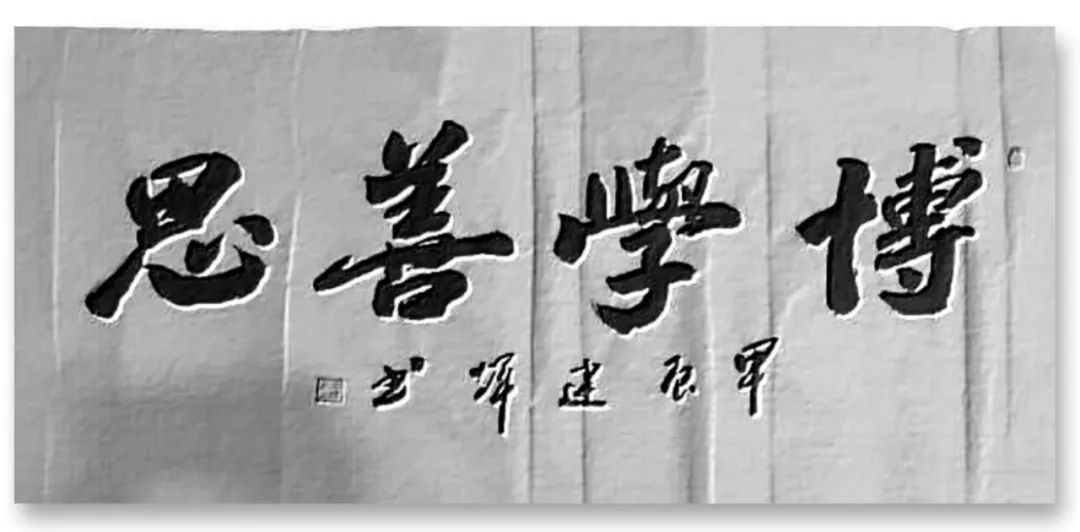 博學善思
甲辰建輝书